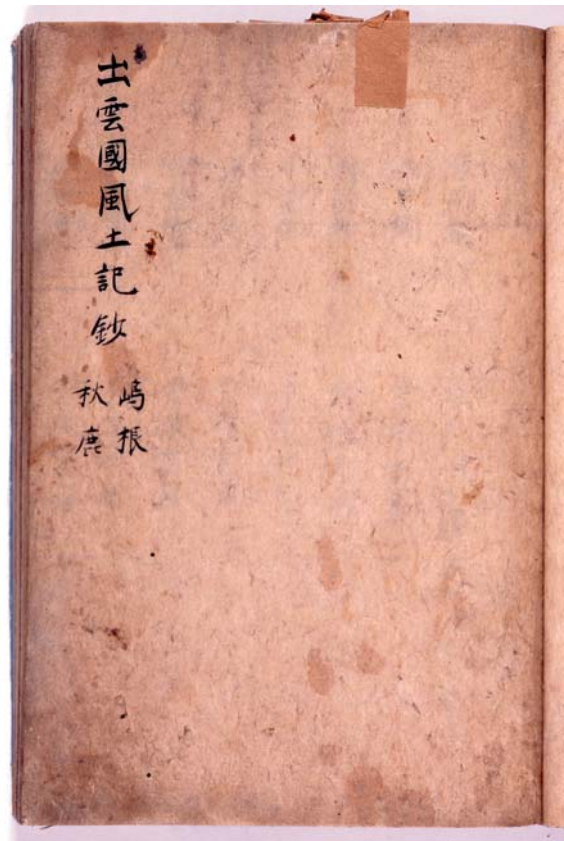 出雲國風土記鈔
嶋根
秋鹿